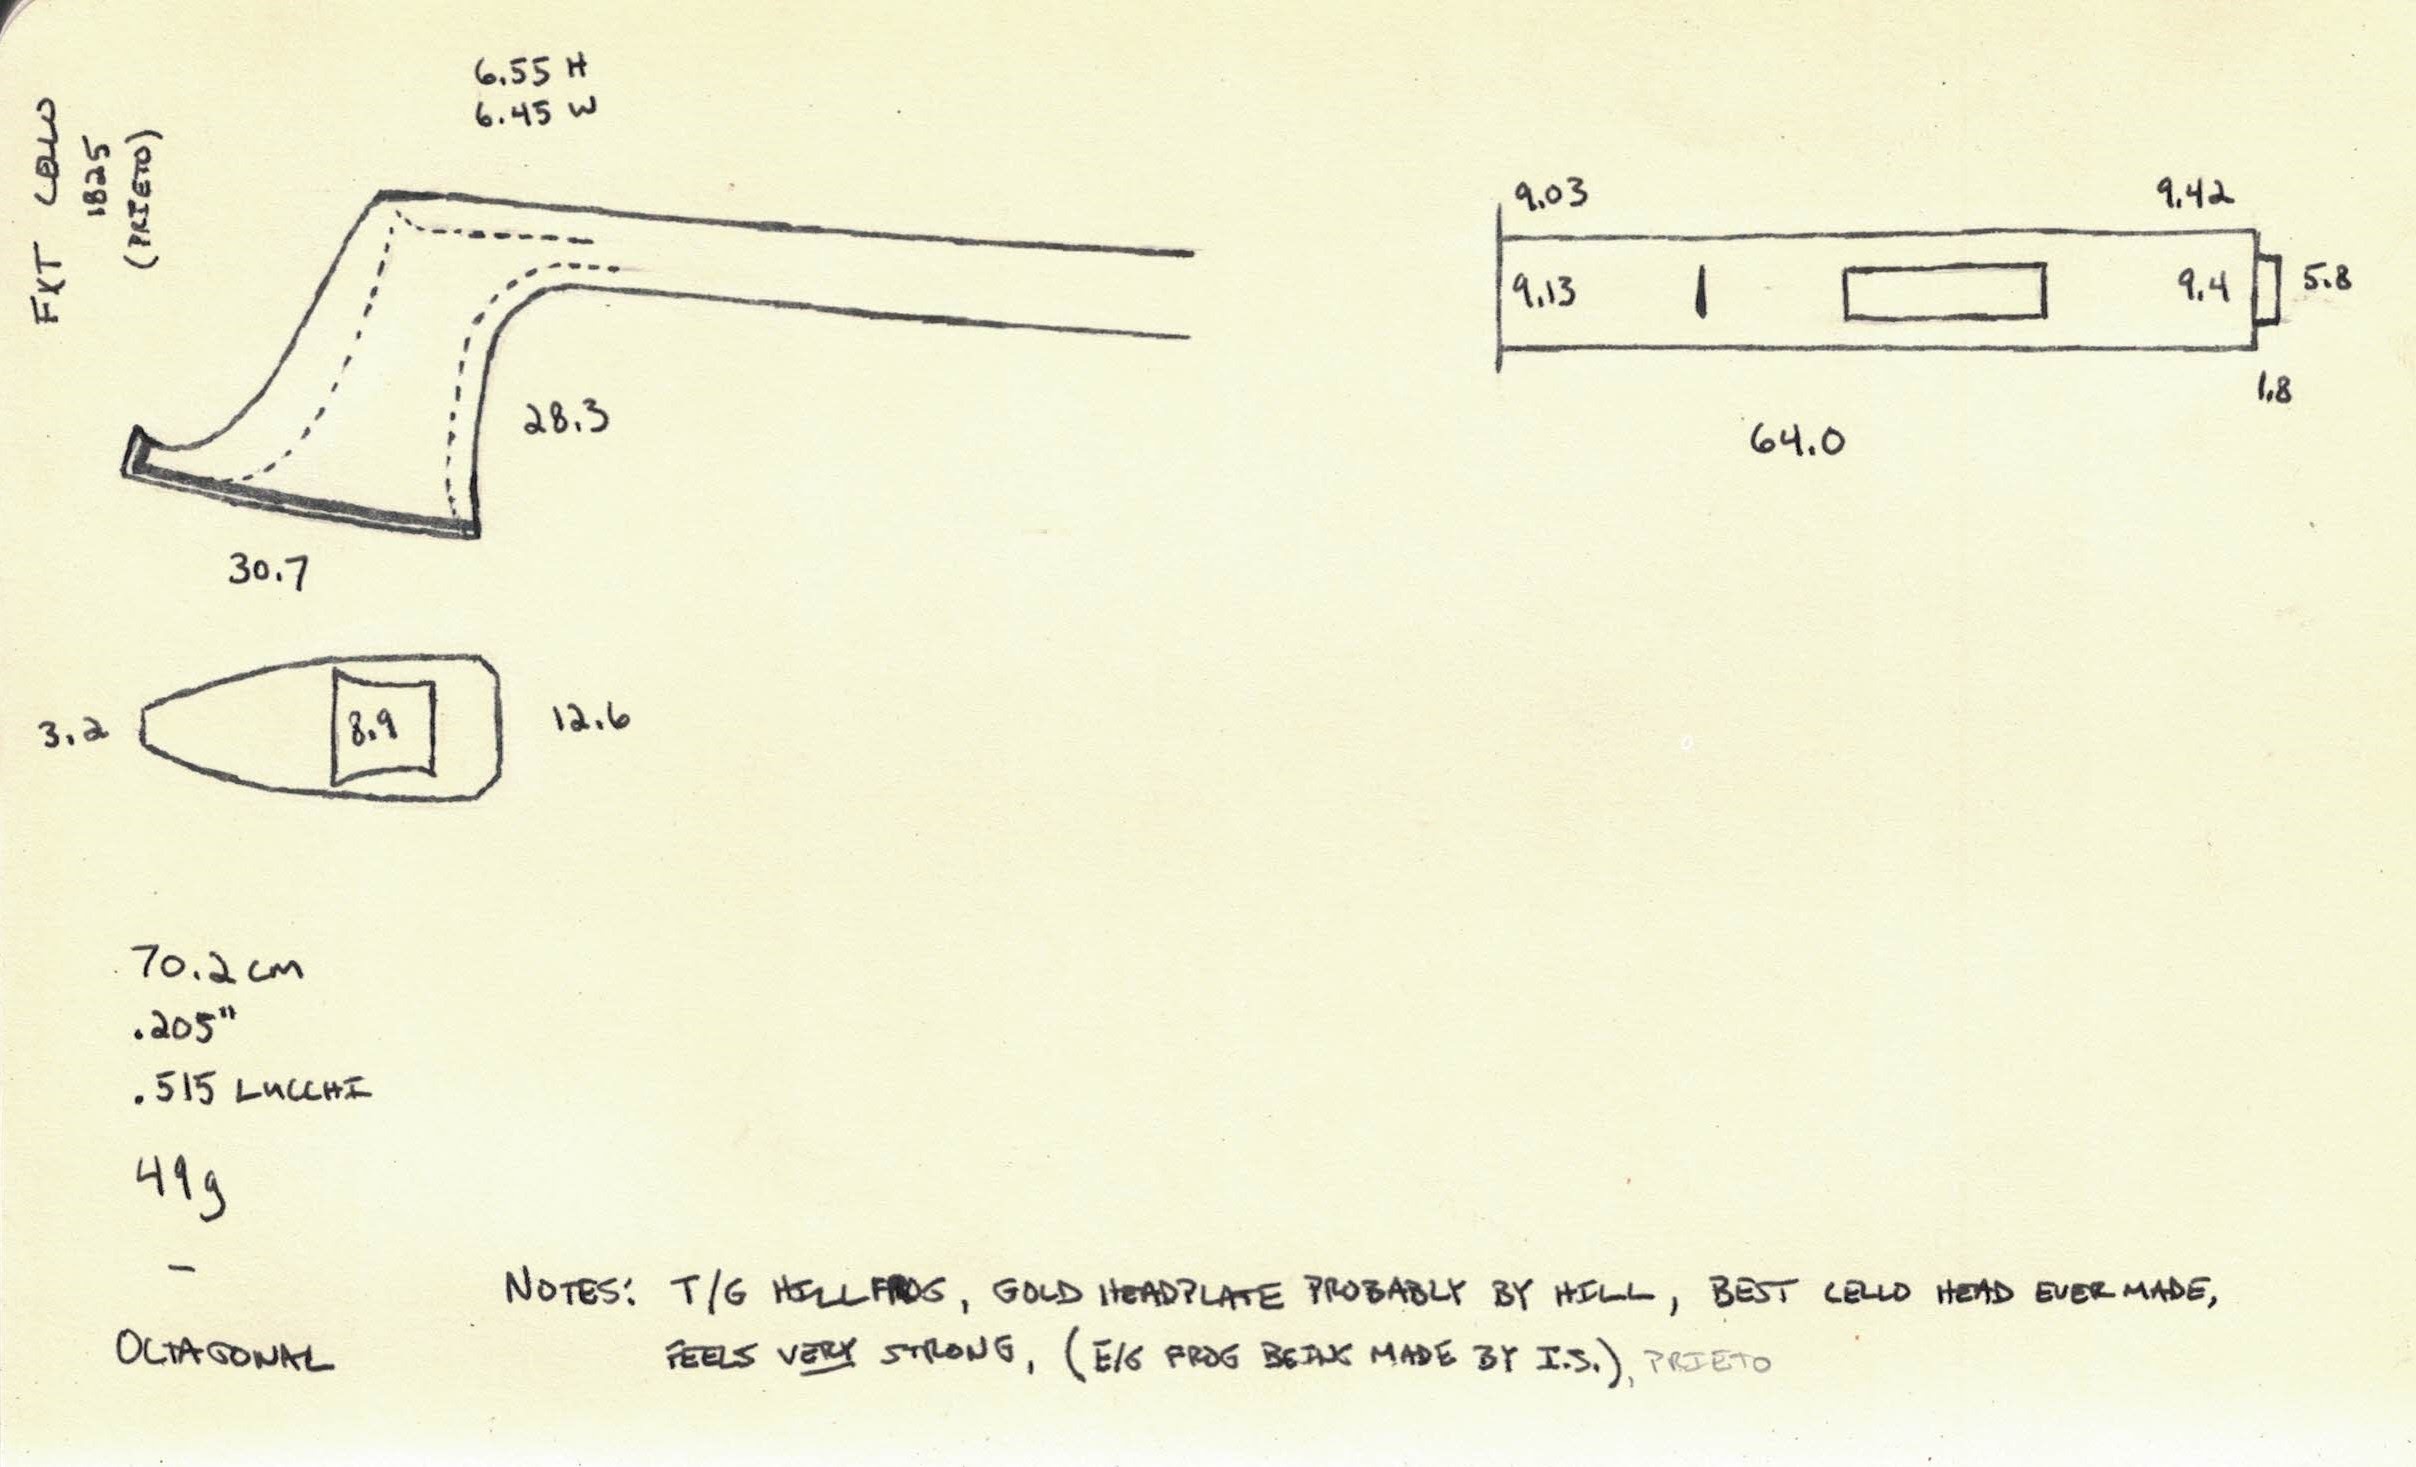 FXT CELLO
1825
(PRIETO)
6.55 H
6.45 W
28.3
30.7
9.03
9.42
9.13
9.4
5.8
1.8
64.0
3.2
8.9
12.6
70.2 cm
.205"
.515 LUCCHI
49g
–
OCTAGONAL
NOTES: T/G HILL FROG, GOLD HEADPLATE PROBABLY BY HILL, BEST CELLO HEAD EVER MADE,
FEELS VERY STRONG, (E/G FROG BEING MADE BY I.S.), PRIETO